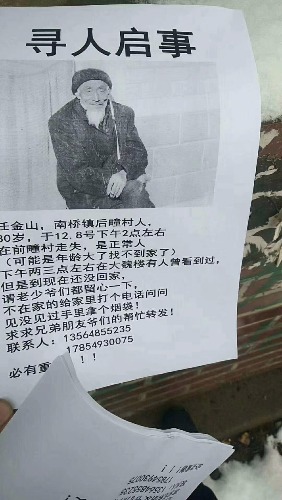 寻人启事
任金山，南桥镇后疃村人，
80岁，于12.8号下午2点左右
在前疃村走失，是正常人
（可能是年龄大了找不到家了）
下午两三点左右在大魏楼有人曾看到过，
但是到现在还没回家，
请老少爷们都留心一下，
不在家的给家里打个电话问问
见没见过手里拿个烟袋！
求求兄弟朋友爷们的帮忙转发！
联系人：13564855235
17854930075
必有重
！！